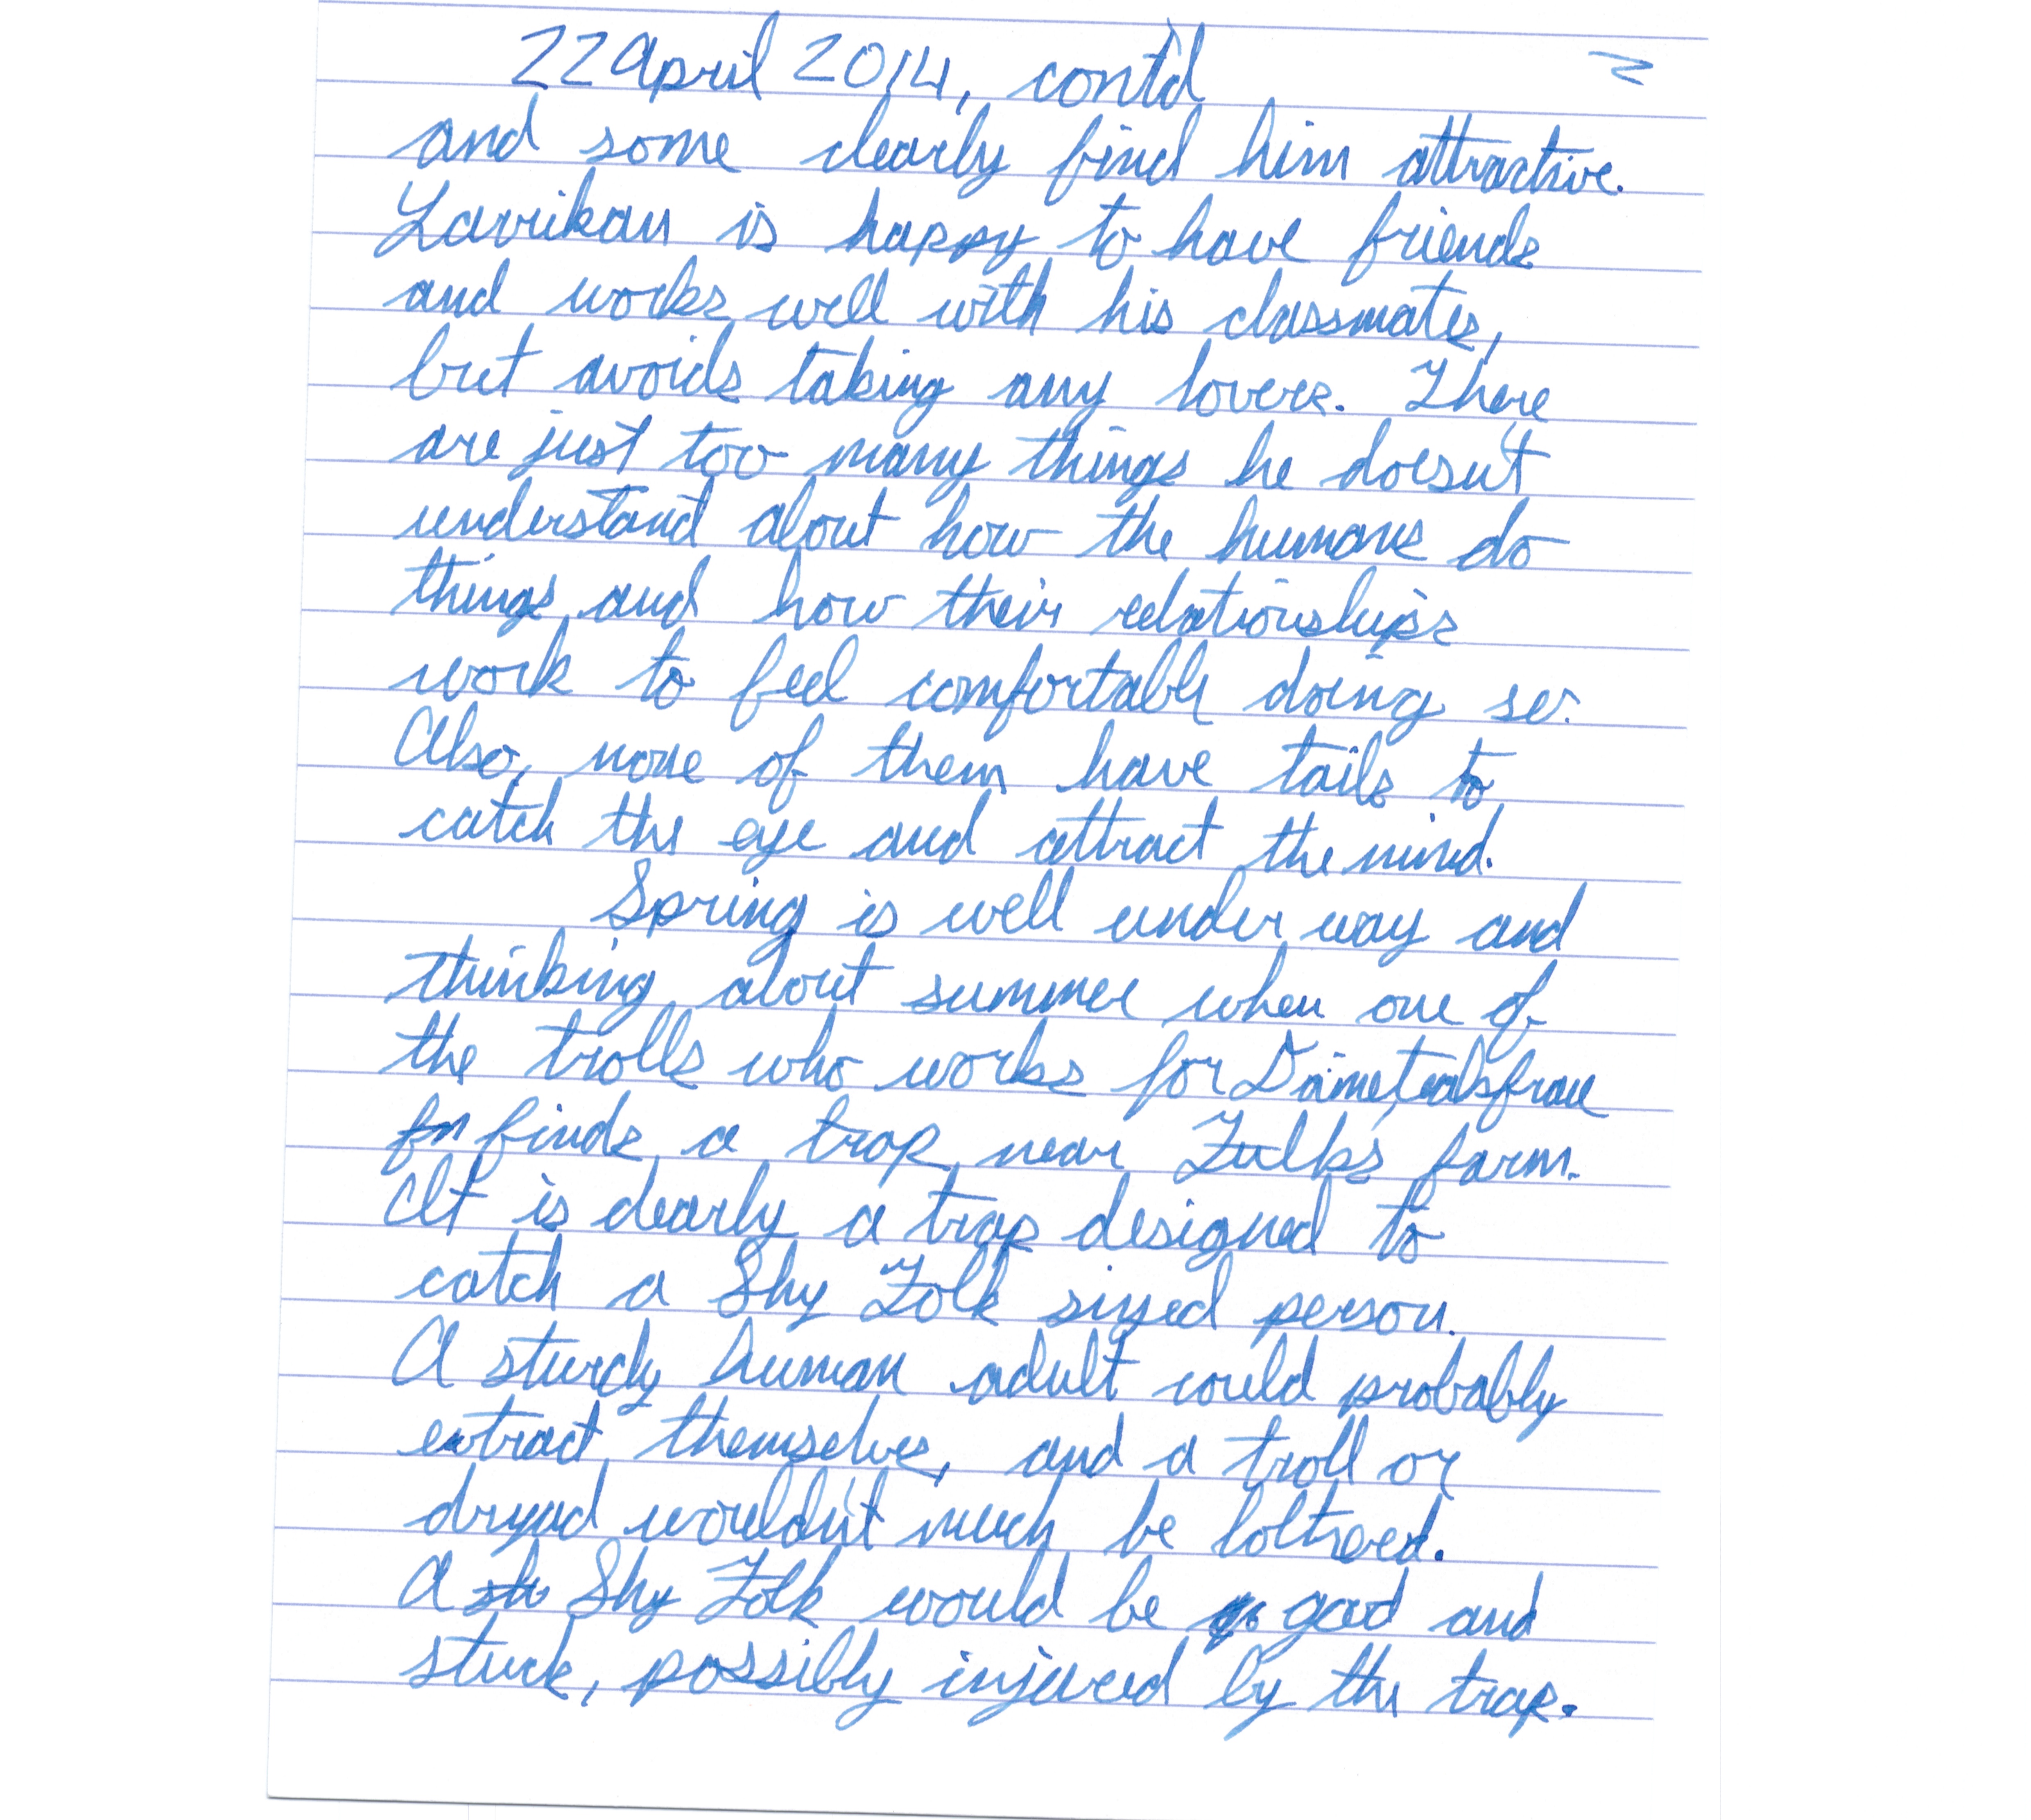 22 April 2014, cont'd
and some clearly find him attractive.
Lavrikan is happy to have friends
and works well with his classmates,
but avoids taking any lovers. There
are just too many things he doesn't
understand about how the humans do
things and how their relationships
work to feel comfortable doing so.
Also, none of them have tails to
catch the eye and attract the mind.
Spring is well under way and
thinking about summer when one of
the trolls who works for
finds a trap near Fulk's farm.
It is clearly a trap designed to
catch a Shy Folk sized person.
A sturdy human adult could probably
extract themselves, and a troll or
dryad wouldn't much be bothered.
A sh Shy Folk would be good and
stuck, possibly injured by the trap.